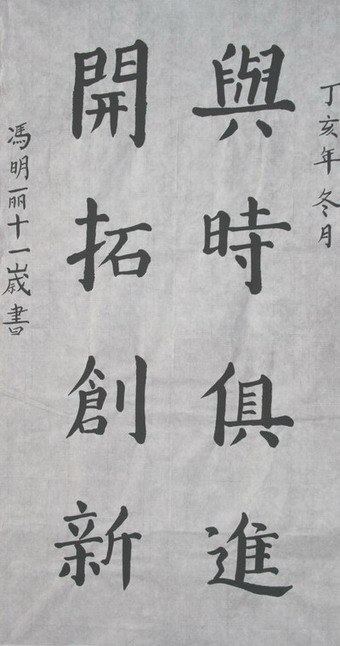 丁亥年冬月
與時俱進
開拓創新
馮明丽十一歲書